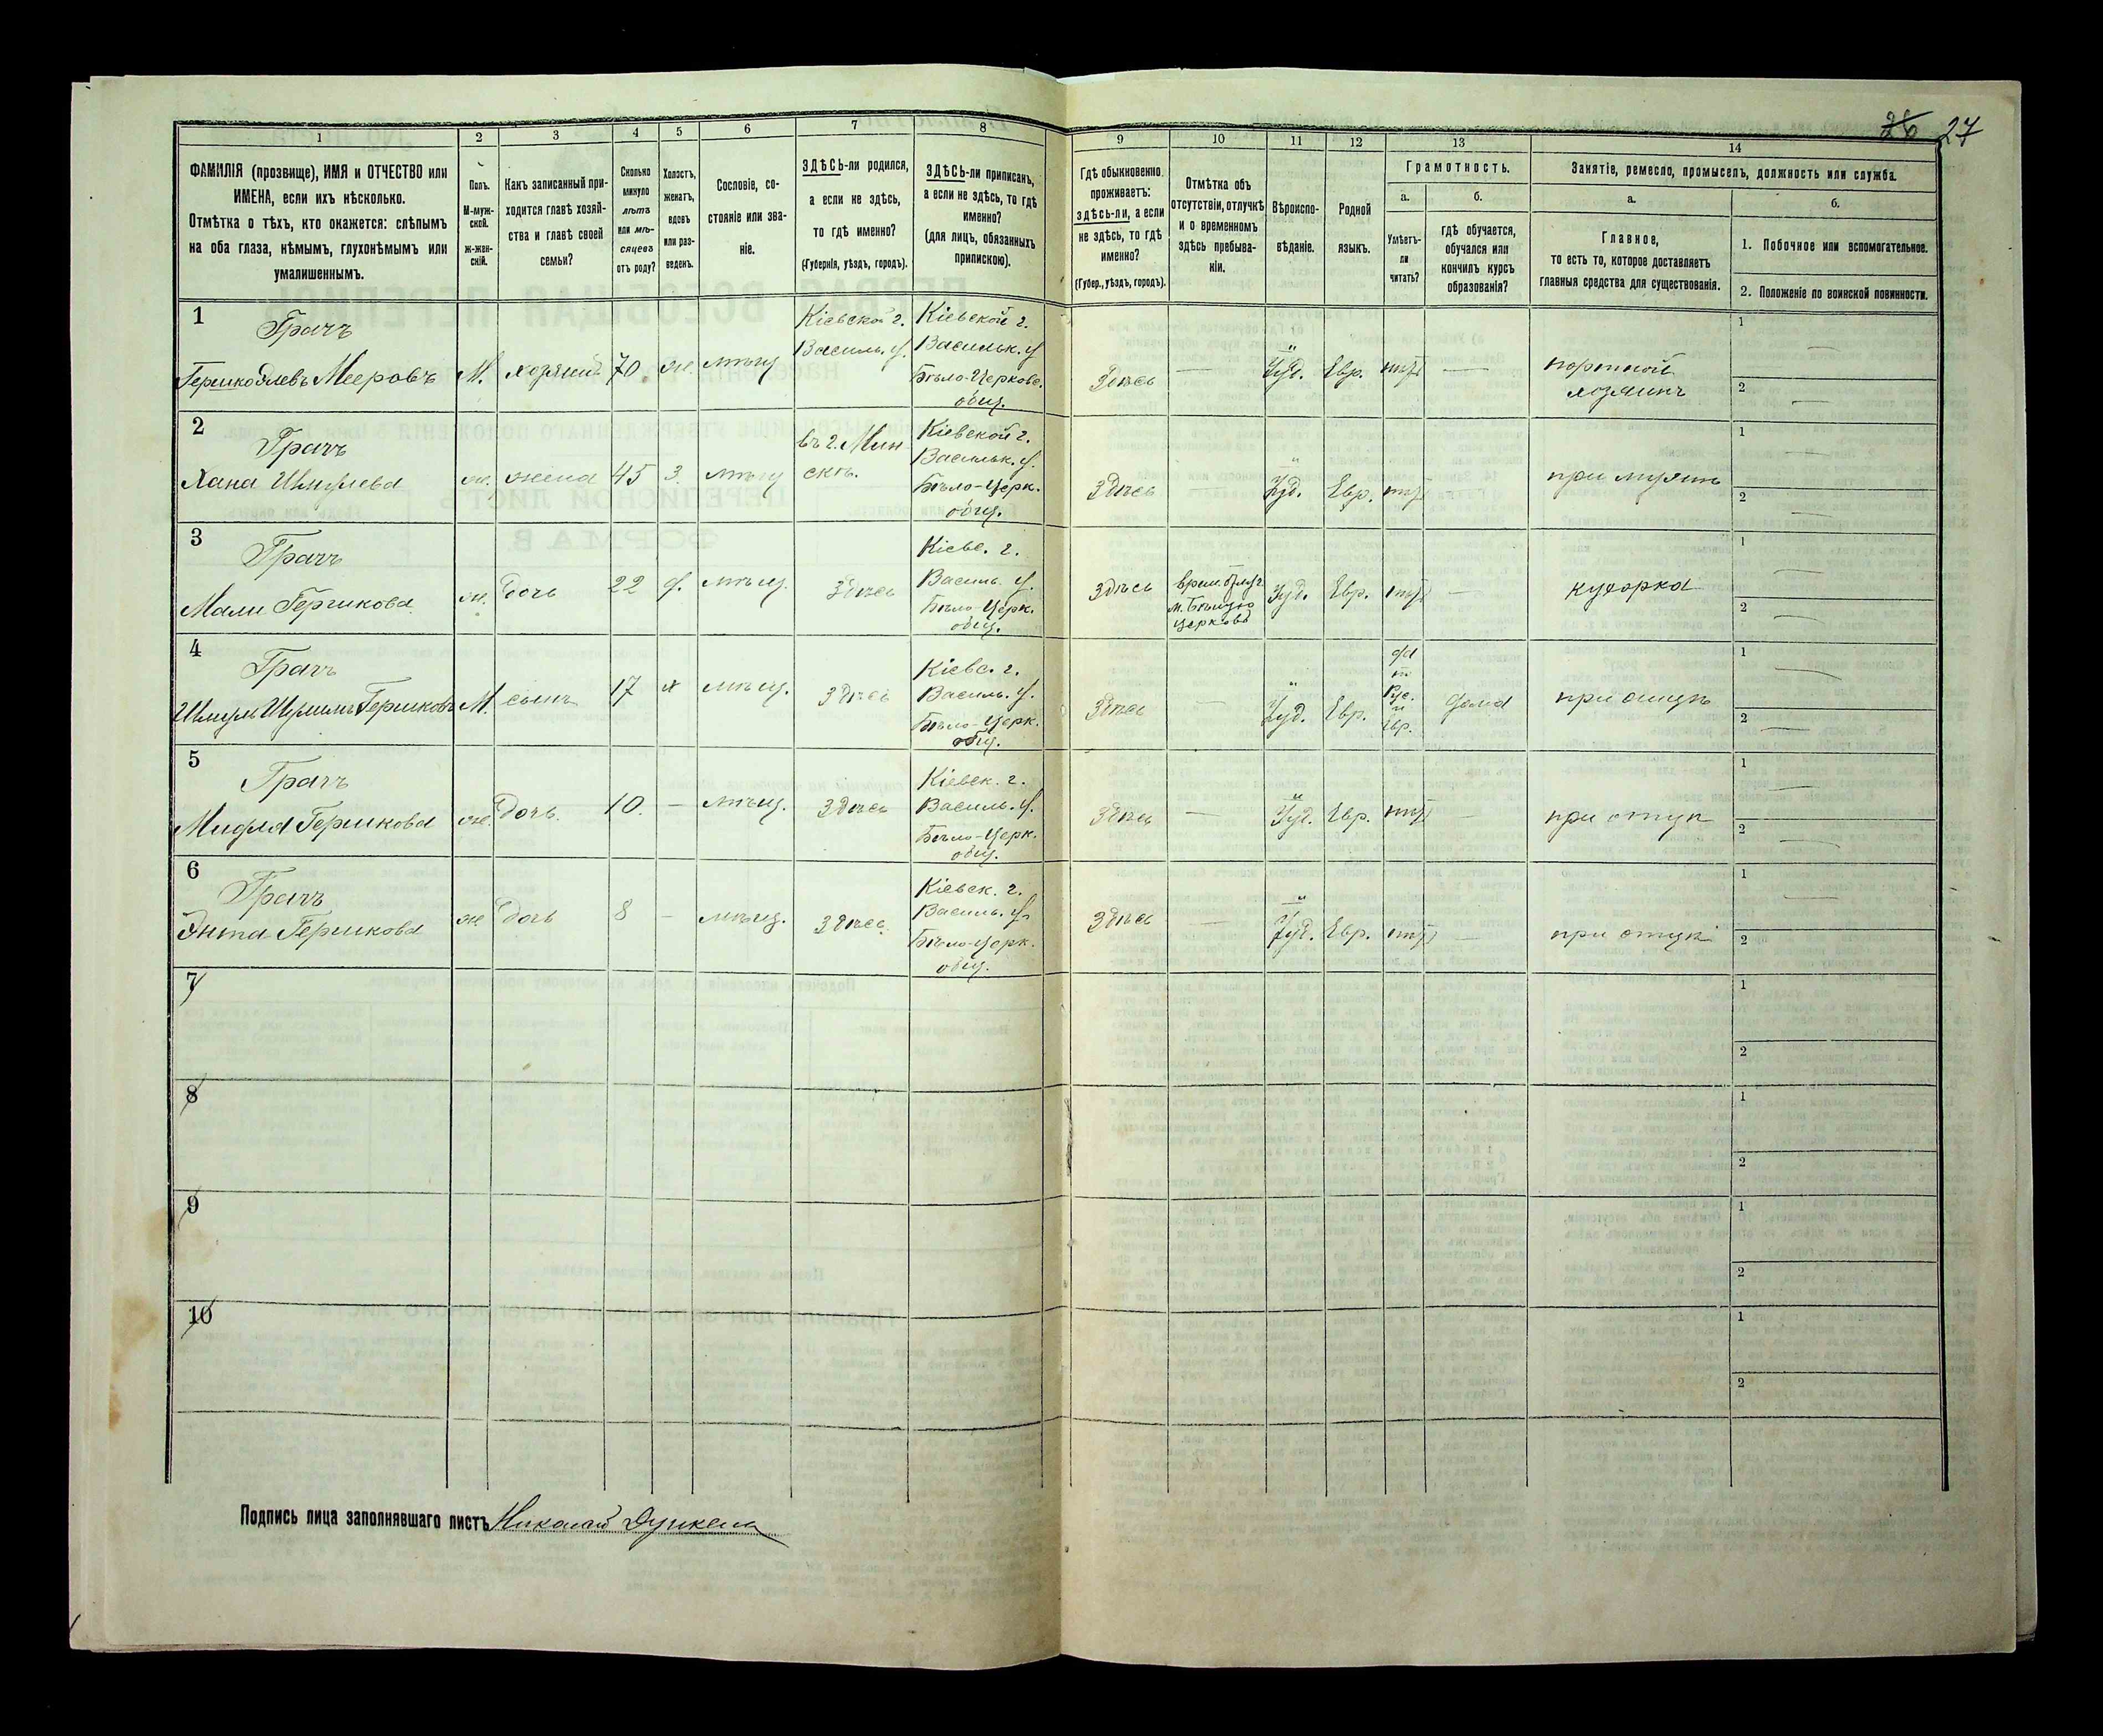 26 27
1 2 3 4 5 6 7 8 9 10 11 12 13 14
ФАМИЛІЯ (прозвище), ИМЯ и ОТЧЕСТВО или
ИМЕНА, если ихъ нѣсколько.
Отмѣтка о тѣхъ, кто окажется: слѣпымъ
на оба глаза, нѣмымъ, глухонѣмымъ или
умалишеннымъ.
Полъ.
М-муж-
ской.
ж-жен-
скій.
Какъ записанный при-
ходится главѣ хозяй-
ства и главѣ своей
семьи?
Сколько
минуло
лѣтъ
или мѣ-
сяцевъ
отъ роду?
Холостъ,
женатъ,
вдовъ
или раз-
веденъ.
Сословіе, со-
стояніе или зва-
ніе.
ЗДѢСЬ-ли родился,
а если не здѣсь,
то гдѣ именно?
(Губернія, уѣздъ, городъ).
ЗДѢСЬ-ли приписанъ,
а если не здѣсь, то гдѣ
именно?
(для лицъ, обязанныхъ
припискою).
Гдѣ обыкновенно
проживаетъ:
здѣсь-ли, а если
не здѣсь, то гдѣ
именно?
(Губер., уѣздъ, городъ).
Отмѣтка объ
отсутствіи, отлучкѣ
и о временномъ
здѣсь пребыва-
ніи.
Вѣроиспо-
вѣданіе.
Родной
языкъ.
Грамотность.
а.
Умѣетъ-
ли
читать?
б.
гдѣ обучается,
обучался или
кончилъ курсъ
образованія?
Занятіе, ремесло, промыселъ, должность или служба.
а.
Главное,
то есть то, которое доставляетъ
главныя средства для существованія.
б.
1. Побочное или вспомогательное.
2. Положеніе по воинской повинности.
1
Грачъ
Мееровъ
М.
хозяинъ
70
ж.
мѣщ
Кіевской г.
Васильк. у.
Кіевской г.
Васильк. у
Бѣло-Церковс.
общ.
Здѣсь
—
Іуд.
Евр.
нѣтъ
—
портной
хозяинъ
1 —
2 —
2
Грачъ
Хана Шмулева
ж.
жена
45
З.
мѣщ
въ г. Мин
скѣ.
Кіевской г.
Васильк. у.
Бѣло-Церк.
общ.
Здѣсь
—
Іуд.
Евр.
нѣтъ
—
при мужѣ
1 —
2 —
3
Грачъ
Мали Гершкова
ж.
дочь
22
д.
мѣщ.
Здѣсь
Кіевс. г.
Василь. у.
Бѣло-Церк.
общ.
Здѣсь
врем. отлуч
м. Бѣлую
Церковь
Іуд.
Евр.
нѣтъ
—
кухарка
1 —
2 —
4
Грачъ
М.
сынъ
17
х
мѣщ.
Здѣсь
Кіевс. г.
Василь. у.
Бѣло-Церк.
общ.
Здѣсь
—
Іуд.
Евр.
Рус.
и
Евр.
дома
при отцѣ
1 —
2 —
5
Грачъ
Гершкова
ж.
дочь.
10.
—
мѣщ.
Здѣсь
Кіевск. г.
Василь. у.
Бѣло-Церк.
общ.
Здѣсь
—
Іуд.
Евр.
нѣтъ
—
при отцѣ
1 —
2 —
6
Грачъ
Энта Гершкова
ж.
дочь
8
—
мѣщ.
Здѣсь.
Кіевск. г.
Василь. у.
Бѣло-Церк.
общ.
Здѣсь
—
Іуд.
Евр.
нѣтъ
—
при отцѣ
1 —
2
7
1
2
8
1
2
9
1
2
10
1
2
Подпись лица заполнявшаго листъ Николай